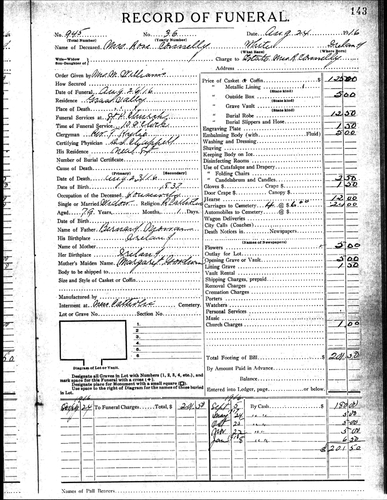 143
RECORD OF FUNERAL.
No. 945 No. 36 Date, Aug 24 1916
(Total Number) (Yearly Number)
Name of Deceased, Mrs. Rose Connelly White Ireland
(What Race) (Where Born)
Charge to Estate Mrs R Connelly
Address
Order Given by Mrs M. Williams
How Secured
Date of Funeral Aug 26/16
Residence Grass Valley
Place of Death
Funeral Services at St Church
Time of Funeral Service 10 o'clock
Clergyman Rev.
Certifying Physician
His Residence
Number of Burial Certificate
Cause of Death
(Primary) (Secondary)
Date of Death Aug 23/16
Date of Birth 1837
Occupation of the Deceased, Housewife
Single or Married Widow Religion R Catholic
Aged 79 Years, Months, 1 Days.
Name of Father Bernard
His Birthplace Ireland
Name of Mother
Her Birthplace Ireland
Mother's Maiden Name Margaret
Body to be shipped to
Size and Style of Casket or Coffin
Manufactured by
Interment at Catholic Cemetery.
Lot or Grave No. Section No.
Diagram of Lot or Vault.
Designate all Graves in Lot with Numbers (1, 2, 3, 4, etc.), and
mark space for this Funeral with a cross (+).
Designate place for Monument with a small square (□).
Use space to the right of Diagram for names of those buried
in Lot.
Price of Casket or Coffin 125 00
" Metalic Lining
(State kind)
" Outside Box 5 00
(State kind)
" Grave Vault
(State kind)
" Burial Robe 12 50
" Burial Slippers and Hose
Engraving Plate 1 50
Embalming Body (with Fluid) 5 00
Washing and Dressing
Shaving
Keeping Body on Ice
Disinfecting Rooms
Use of Catafalque and Drapery
" Folding Chairs
" Candelabrum and Candles 2 50
Gloves $ Crape $ 1 50
Door Crape Canopy
Hearse 12 00
Carriages to Cemetery 4 @ $6 00 24 00
Automobiles to Cemetery @
Wagon Deliveries
City Calls (Coaches)
Death Notices in Newspapers
(Names of Newspapers)
Flowers 5 00
Outlay for Lot
Opening Grave or Vault 5 00
Lining Grave 1 50
Vault Rental
Shipping Charges, prepaid
Removal Charges
Cremation Charges
Porters
Watchers
Personal Services
Music
Church Charges 1 00
Total Footing of Bill 201 50
By Amount Paid in Advance
Balance
Entered into Ledger, page or below.
1916
Aug 24 To Funeral Charges Total, $ 201 50
1916
Sept 5 By Cash $ 180 00
5 00
Oct 5 00
Nov 5 00
Jan 6 50
$ 201 50
Names of Pall Bearers.